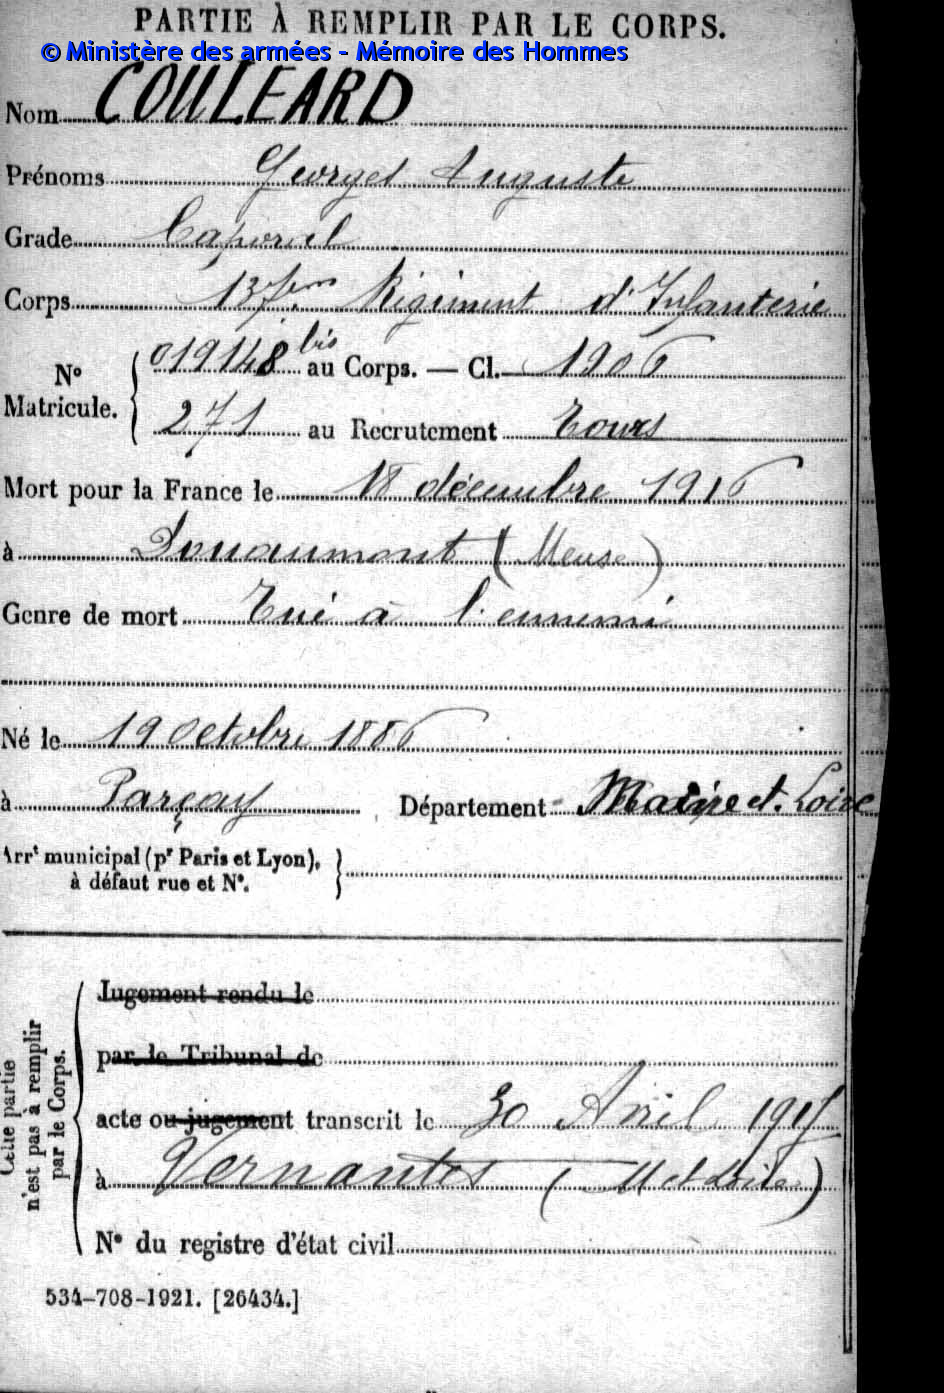 PARTIE À REMPLIR PAR LE CORPS.
© Ministère des armées - Mémoire des Hommes
Nom COULEARD
Prénoms Georges Auguste
Grade Caporal
Corps 137ème Régiment d'Infanterie
N° Matricule. 019148 bis au Corps. — Cl. 1906
271 au Recrutement Tours
Mort pour la France le 18 décembre 1916
à Douaumont (Meuse)
Genre de mort Tué à l'ennemi
Né le 19 Octobre 1886
à Parçay Département Maine et. Loire
Arrt municipal (pr Paris et Lyon),
à défaut rue et N°.
Jugement rendu le
par le Tribunal de
acte ou jugement transcrit le 30 Avril 1917
à Vernantes (M et Loire)
N° du registre d'état civil
Cette partie
n'est pas à remplir
par le Corps.
534-708-1921. [26434.]